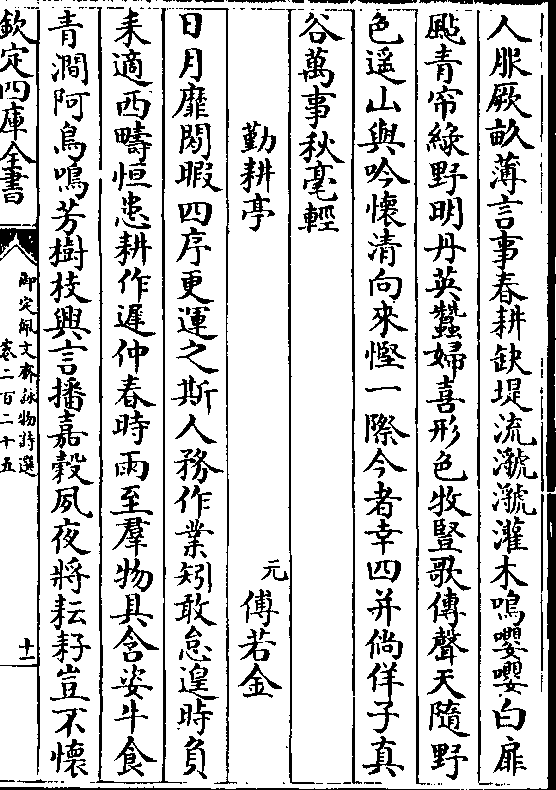 人服厥畝薄言事春耕缺堤流㶁㶁灌木鳴嚶嚶白扉
颭青帘緑野明丹英蠶婦喜形色牧豎歌傳聲天隨野
色遥山與吟懷清向來慳一際今者幸四并倘佯子真
谷萬事秋毫輕
勤耕亭 元 傅若金
日月靡閒暇四序更運之斯人務作業矧敢怠遑時負
耒適西疇恒患耕作遲仲春時雨至羣物具含姿牛食
青澗阿鳥鳴芳樹枝興言播嘉穀夙夜將耘耔豈不懷
欽定四庫全書
御定佩文齋詠物詩選
卷二百二十五
十一